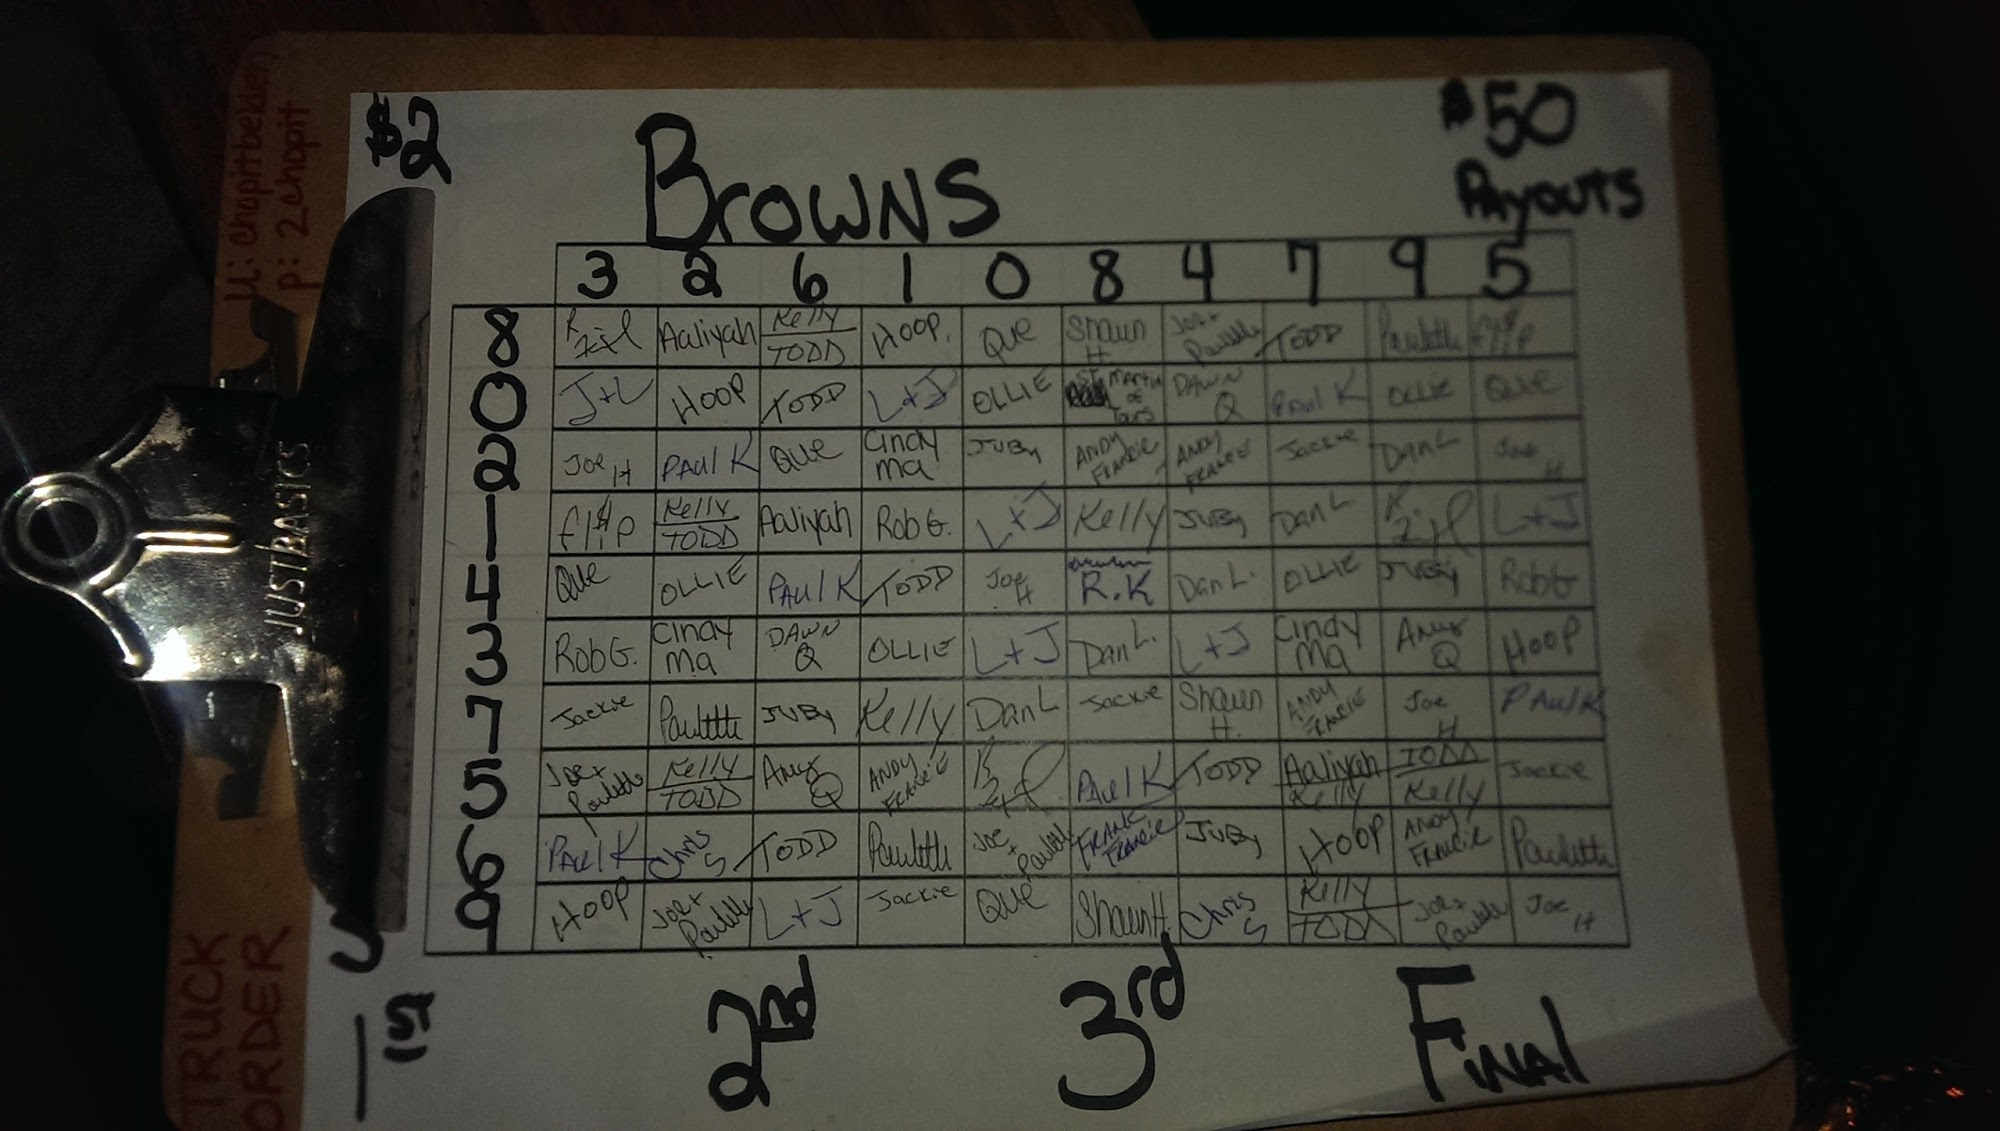 u: chopitbelden
p: 2chopit
$2
$50
Payouts
Browns
3 2 6 1 0 8 4 7 9 5
8 Aaliyah Kelly/TODD HOOP. QUE Shawn H. Joe + Paulette TODD Paulette fl!p
0 J+L HOOP TODD L+J OLLIE ST. Martin of Tours DAWN Q PAUL K OLLIE QUE
2 Joe H PAUL K QUE Cindy Ma JUBY ANDY FRANCIE ANDY FRANCIE Jackie Dan L Joe H
1 fl!p Kelly/TODD Aaliyah Rob G. L+J Kelly JUBY Dan L L+J
4 QUE OLLIE PAUL K TODD Joe H R.K Dan L. OLLIE JUBY Rob G
3 Rob G. Cindy Ma DAWN Q OLLIE L+J Dan L. L+J Cindy Ma Q HOOP
7 Jackie Paulette JUBY Kelly Dan L Jackie Shawn H. ANDY FRANCIE Joe H PAUL K
5 Joe + Paulette Kelly/TODD Q ANDY FRANCIE PAUL K TODD Aaliyah Kelly TODD/Kelly Jackie
6 PAUL K Chris S TODD Paulette Joe + Paulette FRANK FRANCIE JUBY HOOP ANDY FRANCIE Paulette
9 HOOP Joe + Paulette L+J Jackie QUE Shawn H. Chris S Kelly/TODD Joe + Paulette Joe H
1st 2nd 3rd Final
JUSTBASICS
TRUCK
ORDER